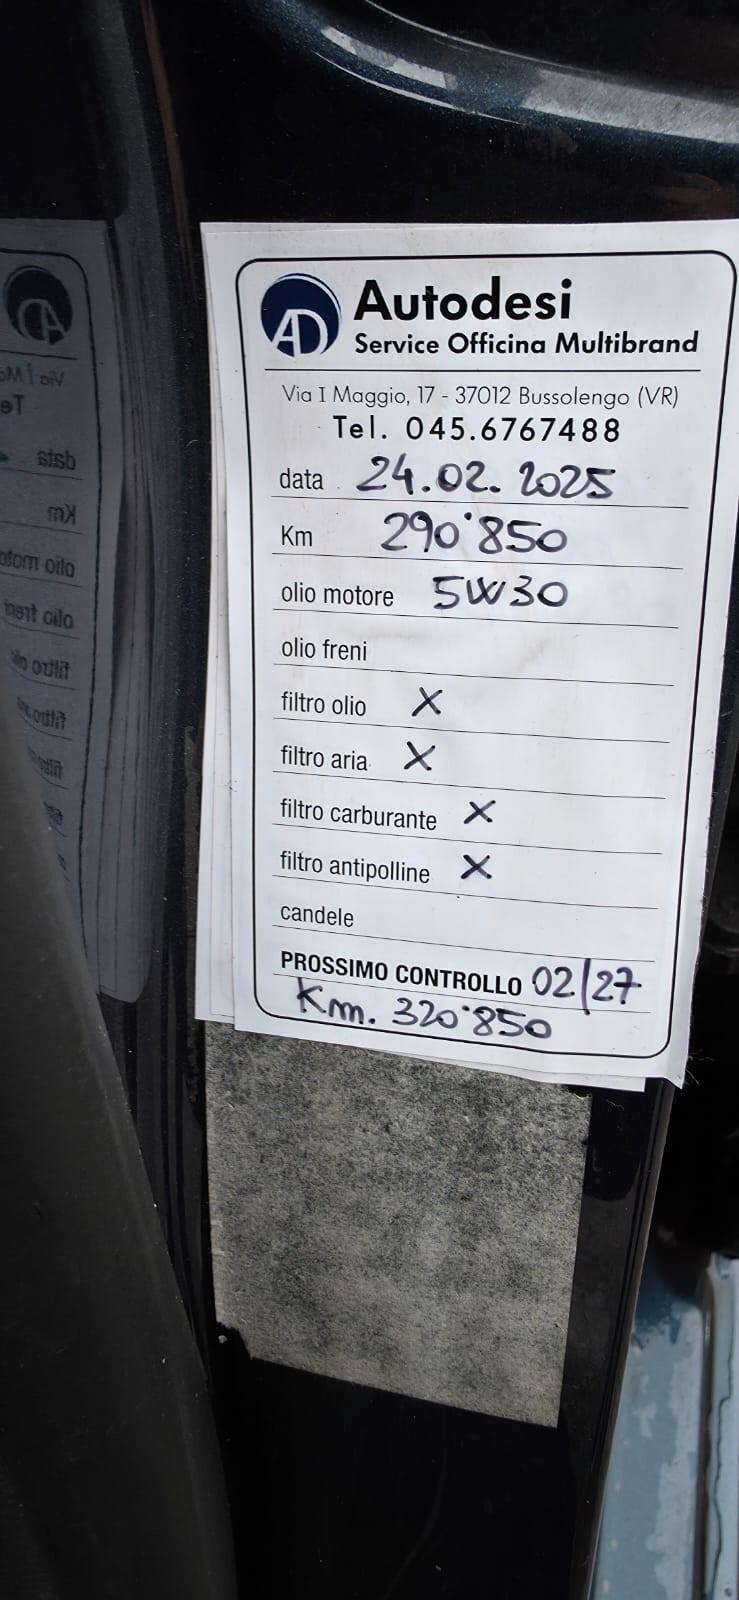 AD Autodesi
Service Officina Multibrand
Via I Maggio, 17 - 37012 Bussolengo (VR)
Tel. 045.6767488
data 24.02.2025
Km 290'850
olio motore 5W30
olio freni
filtro olio X
filtro aria X
filtro carburante X
filtro antipolline X
candele
PROSSIMO CONTROLLO 02/27
Km. 320'850